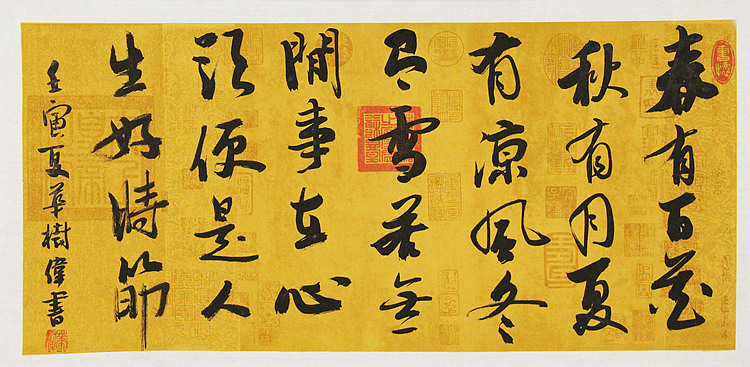 春有百花
秋有月夏
有涼風冬
有雪若無
閒事在心
頭便是人
生好時節
壬寅夏華樹偉書